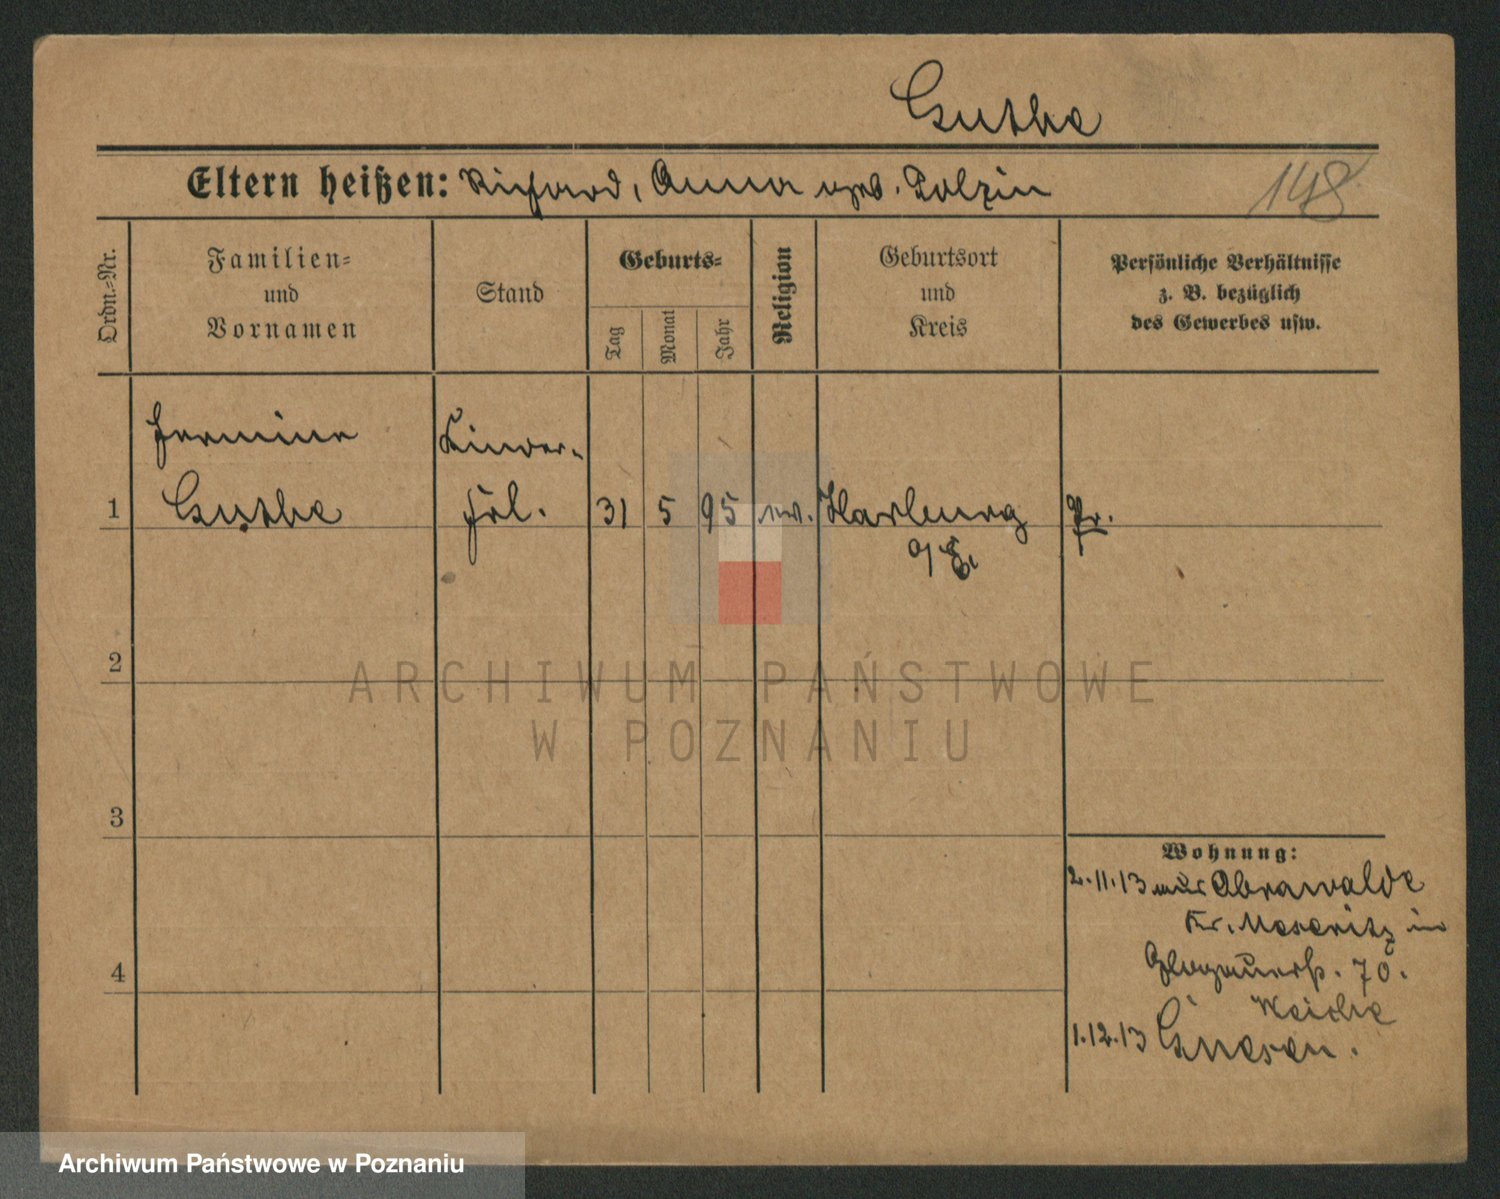 Guthe
Eltern heißen: Richard, Anna geb. Polzin
148
Ordn.-Nr.
Familien-
und
Vornamen
Stand
Geburts-
Tag
Monat
Jahr
Religion
Geburtsort
und
Kreis
Persönliche Verhältnisse
z. B. bezüglich
des Gewerbes usw.
Hermine
Kinder-
1 Guthe frl. 31 5 95 ev. Harburg Pr.
a/E.
2
3
4
Wohnung:
2.11.13 aus Obrawalde
Kr. Meseritz in
Glogauerstr. 70.
1.12.13 Gnesen.
ARCHIWUM PAŃSTWOWE
W POZNANIU
Archiwum Państwowe w Poznaniu